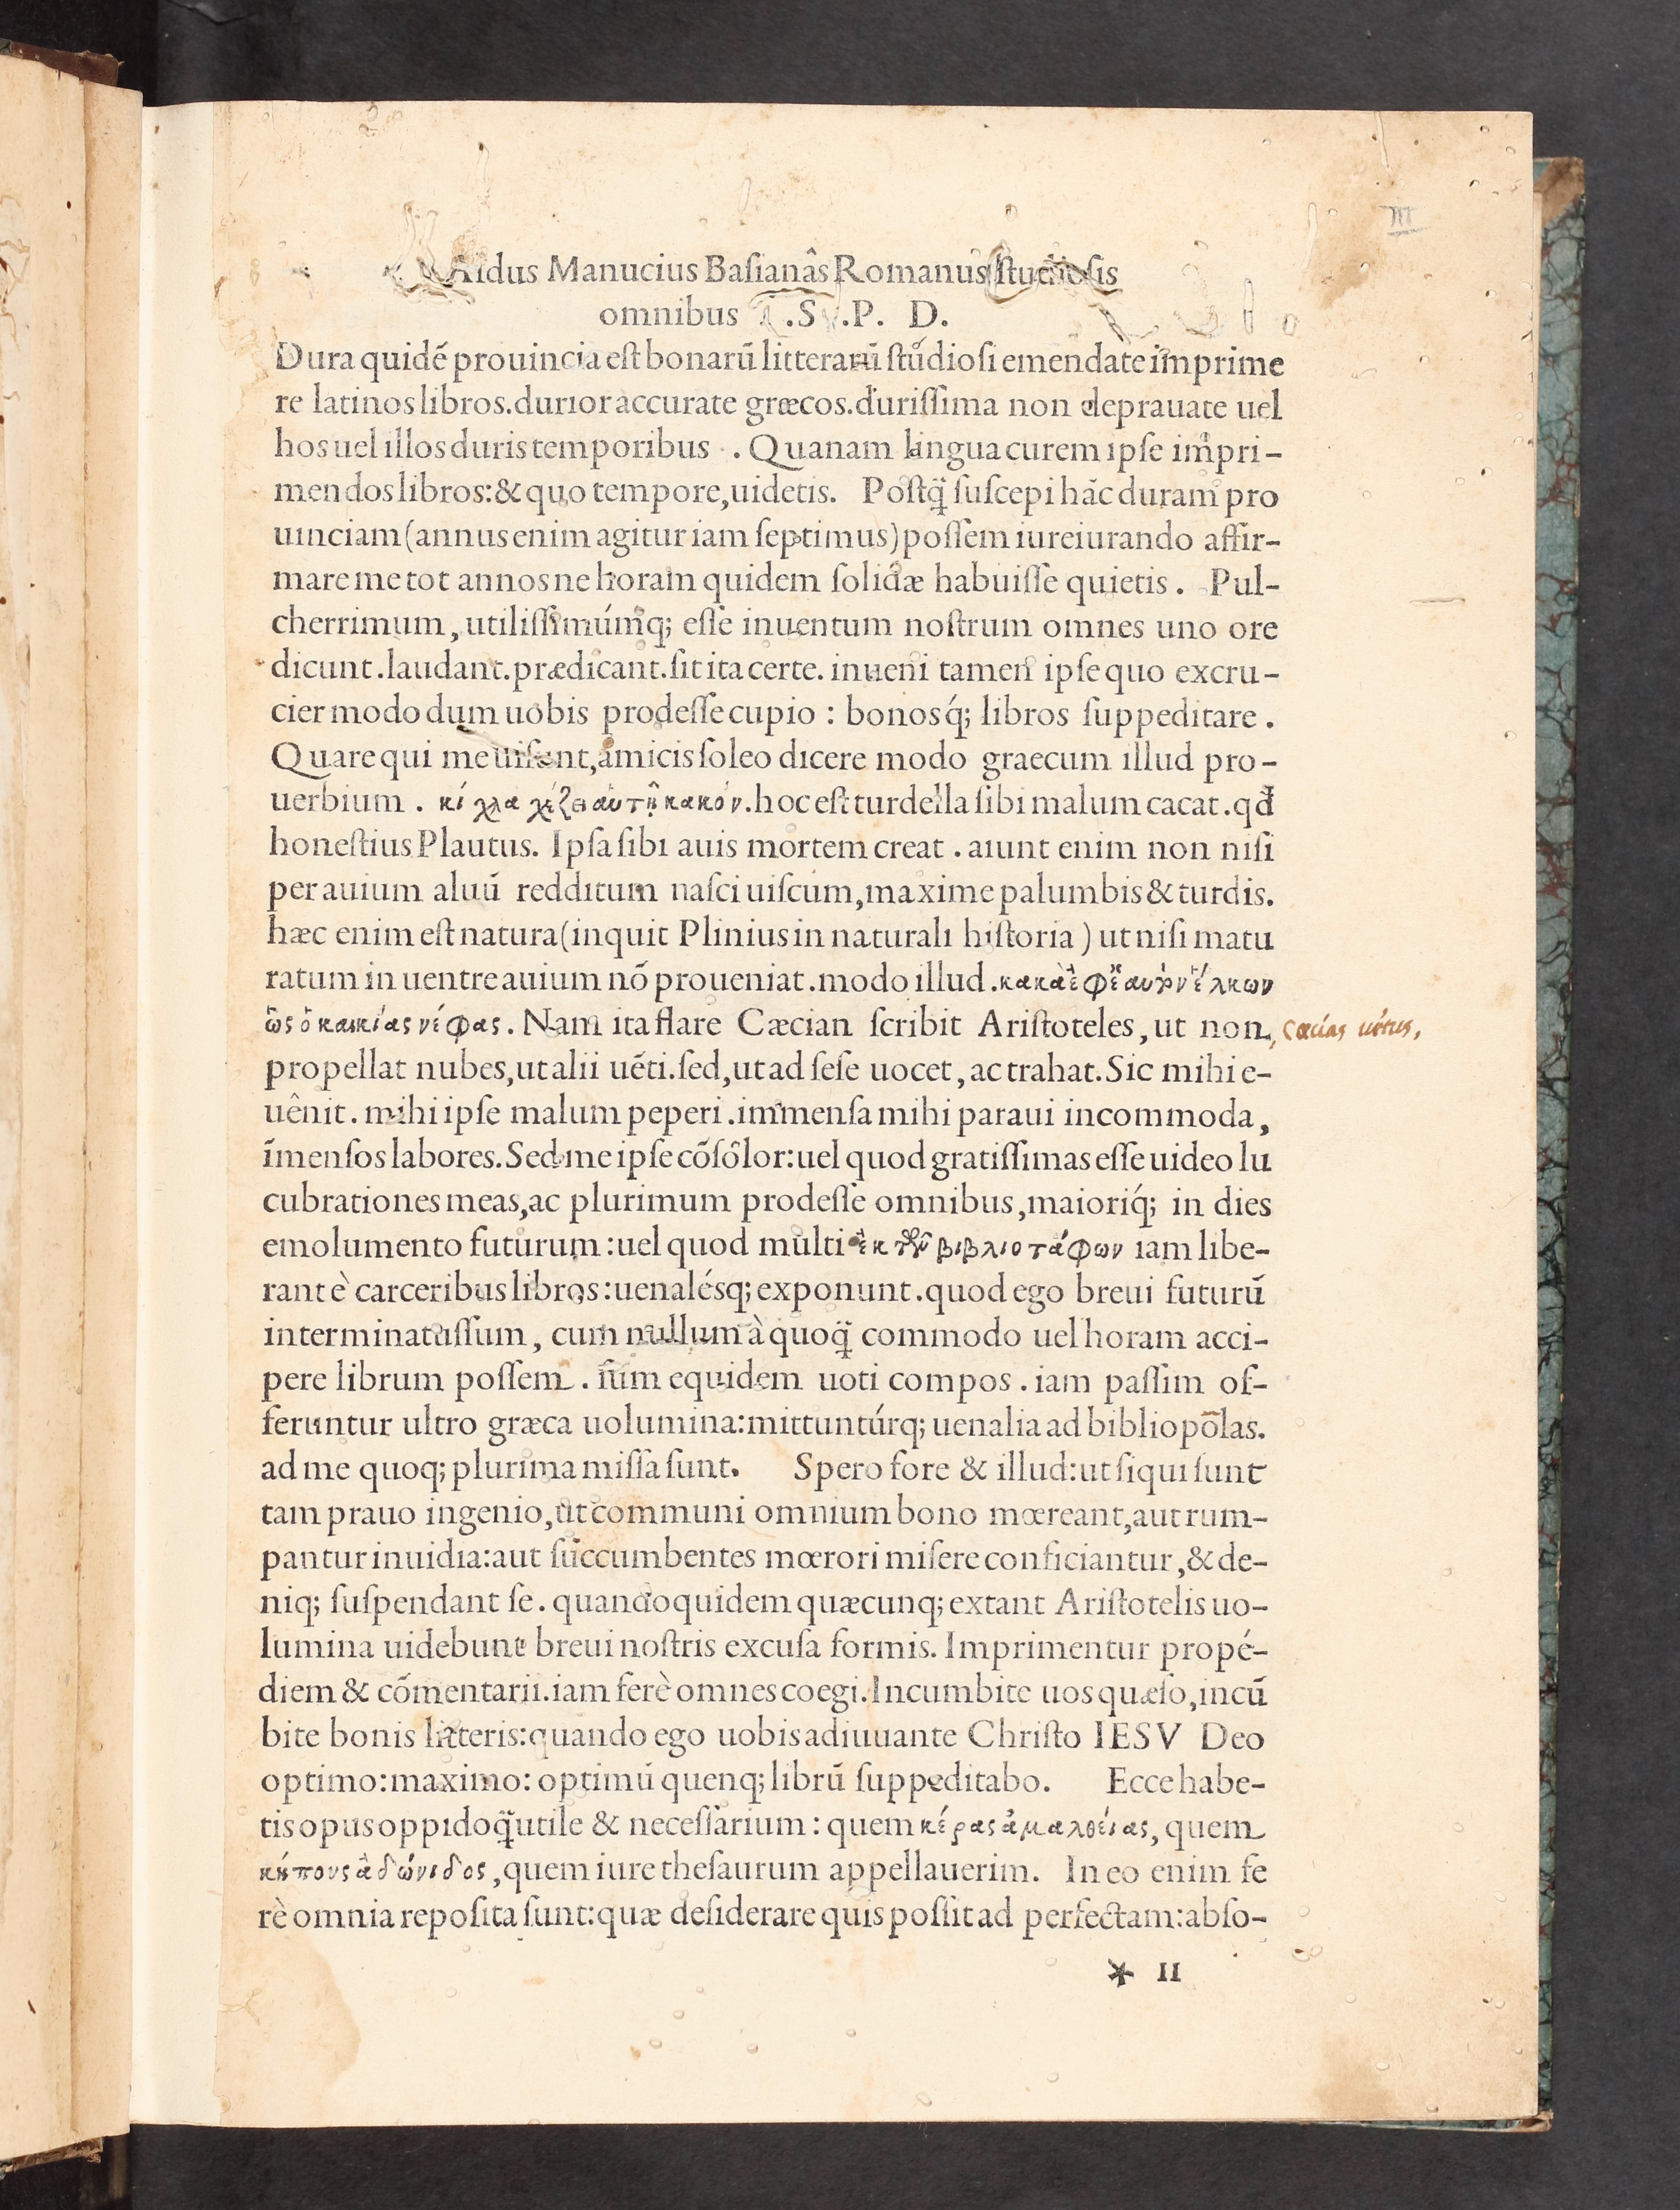 III
Aldus Manucius Baſianâs Romanus ſtudioſis
omnibus .S .P. D.
Dura quidē prouincia eſt bonarū litterarū ſtudioſi emendate imprime
re latinos libros. durior accurate græcos. duriſſima non deprauate uel
hos uel illos duris temporibus . Quanam lingua curem ipſe impri-
mendos libros: & quo tempore, uidetis. Poſtq̃ ſuſcepi hāc duram pro
uinciam (annus enim agitur iam ſeptimus) poſſem iureiurando affir-
mare me tot annos ne horam quidem ſolidæ habuiſſe quietis. Pul-
cherrimum, utiliſſimúmq; eſſe inuentum noſtrum omnes uno ore
dicunt. laudant. prædicant. ſit ita certe. inueni tamen ipſe quo excru-
cier modo dum uobis prodeſſe cupio : bonosq́; libros ſuppeditare.
Quare qui me uiſunt, amicis ſoleo dicere modo graecum illud pro-
uerbium . κίχλα χέζει αὑτῇ κακόν. hoc eſt turdella ſibi malum cacat. qđ
honeſtius Plautus. Ipſa ſibi auis mortem creat. aiunt enim non niſi
per auium aluū redditum naſci uiſcum, maxime palumbis & turdis.
hæc enim eſt natura (inquit Plinius in naturali hiſtoria) ut niſi matu
ratum in uentre auium nō proueniat. modo illud. κακὰ ἐφ' ἑαυτὸν ἕλκων
ὡς ὁ καικίας νέφας. Nam ita flare Cæcian ſcribit Ariſtoteles, ut non
propellat nubes, ut alii uēti. ſed, ut ad ſeſe uocet, ac trahat. Sic mihi e-
uênit. mihi ipſe malum peperi. immenſa mihi paraui incommoda,
īmenſos labores. Sed me ipſe cōſôlor: uel quod gratiſſimas eſſe uideo lu
cubrationes meas, ac plurimum prodeſſe omnibus, maioriq́; in dies
emolumento futurum: uel quod multi ἐκ τῶν βιβλιοτάφων iam libe-
rant è carceribus libros: uenalésq; exponunt. quod ego breui futurū
interminatus ſum, cum nullum à quoq̃ commodo uel horam acci-
pere librum poſſem. ſum equidem uoti compos. iam paſſim of-
feruntur ultro græca uolumina: mittuntúrq; uenalia ad bibliopōlas.
ad me quoq; plurima miſſa ſunt. Spero fore & illud: ut ſiqui ſunt
tam prauo ingenio, ut communi omnium bono mœreant, aut rum-
pantur inuidia: aut ſuccumbentes mœrori miſere conficiantur, & de-
niq; ſuſpendant ſe. quandoquidem quæcunq; extant Ariſtotelis uo-
lumina uidebunt breui noſtris excuſa formis. Imprimentur propé-
diem & cōmentarii. iam ferè omnes coegi. Incumbite uos quæſo, incū
bite bonis litteris: quando ego uobis adiuuante Chriſto IESV Deo
optimo: maximo: optimū quenq; librū ſuppeditabo. Ecce habe-
tis opus oppidoq̃ utile & neceſſarium: quem κέρας ἀμαλθείας, quem
κήπους ἀδώνιδος, quem iure theſaurum appellauerim. In eo enim fe
rè omnia repoſita ſunt: quæ deſiderare quis poſſit ad perfectam: abſo-
* II
cæcias uētus,